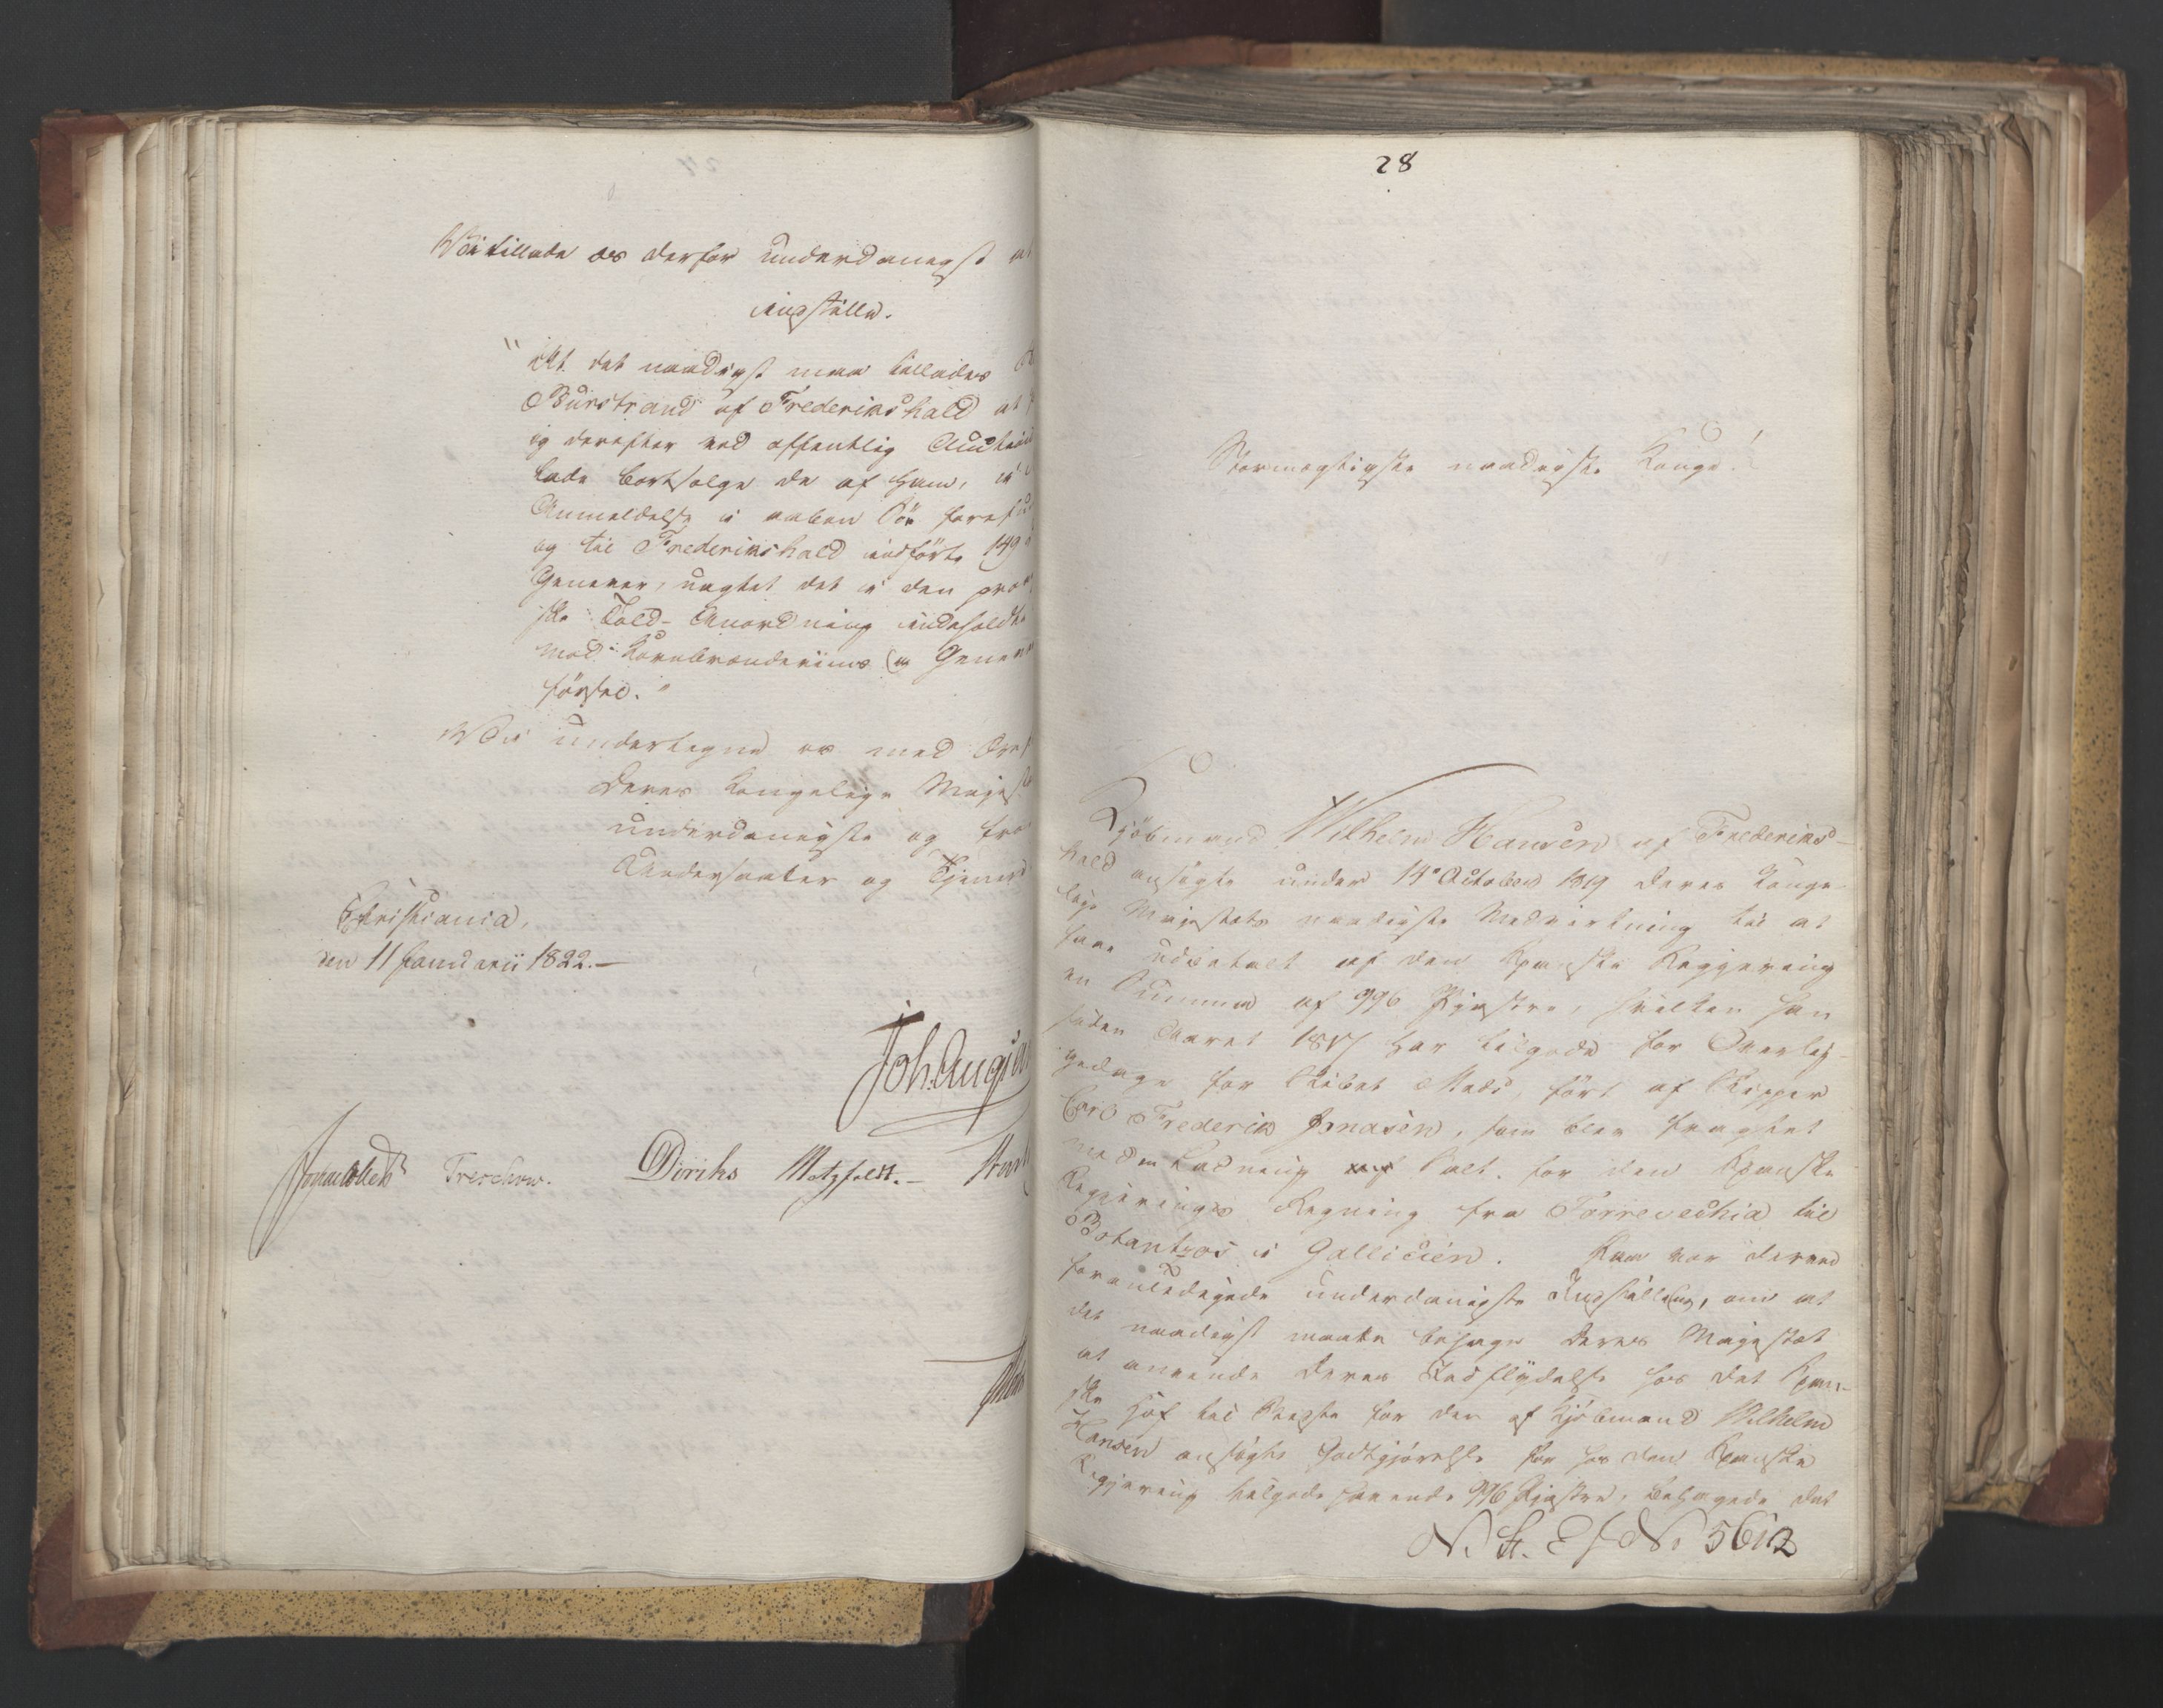 Vi tillade os derfor underdanigst at
indstille.
"At det naadigst maa tillades
Burstrand af Frederikshald at
og derefter ved offentlig Auction
lade bortsælge de af ham, i
Anmeldelse i aaben Söe
og til Frederikshald indförte 149
Genever, uagtet det i den
ske Told-Anordning indeholdte
mod Kornbrændeviins (a Genever
försel."
Vi undertegne os med
Deres Kongelige Majest
underdanigste og tro
Undersaatter og Tjenere
Christiania,
den 11 Januarii 1822.-
Joh. Aug
Jonas Collett Treschow. Diriks Motzfeldt.-
28
Stormægtigste naadigste Konge!
Kjöbmand Wilhelm Hansen af Frederiks-
hald ansögte under 14de October 1819 Deres Konge-
lige Majestæts naadigste Medvirkning til at
faae udbetalt af den Spanske Regjering
en Summa af 996 Piastre, hvilken han
siden Aaret 1817 har tilgode for Overlig-
gedage for Skibet Mads, fört af Skipper
Carl Frederik Jonasen, som blev fragtet
med en Ladning Salt for den Spanske
Regjerings Regning fra Torrevechia til
Betantzos i Gallicien. Den var derved
foranledigede underdanigste Indstilling, om at
det naadigst maatte behage Deres Majestæt
at anvende Deres Indflydelse hos det Span-
ske Hof til Bedste for den af Kjöbmand Wilhelm
Hansen ansögte Godtgjörelse for hos den Spanske
Regjering tilgode havende 996 Piastre, behagede det
N. St. E. f. No 56 1/2